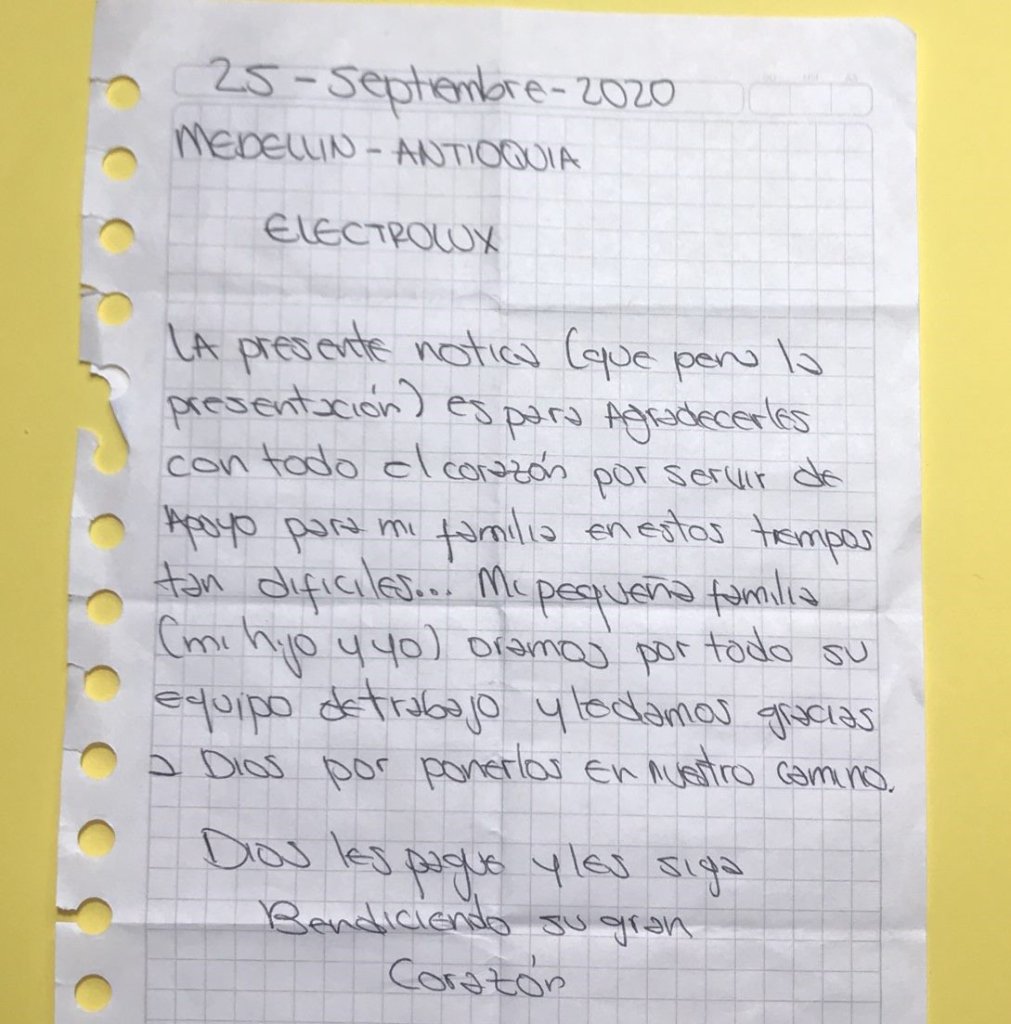 25 - Septiembre - 2020
MEDELLIN - ANTIOQUIA
ELECTROLUX
LA presente notica (que pena la
presentación) es para Agradecerles
con todo el corazón por servir de
Apoyo para mi familia en estos tiempos
tan dificiles... Mi pequeña familia
(mi hijo y yo) oramos por todo su
equipo de trabajo y le damos gracias
a Dios por ponerlos en nuestro camino.
Dios les pague y les siga
Bendiciendo su gran
Corazón